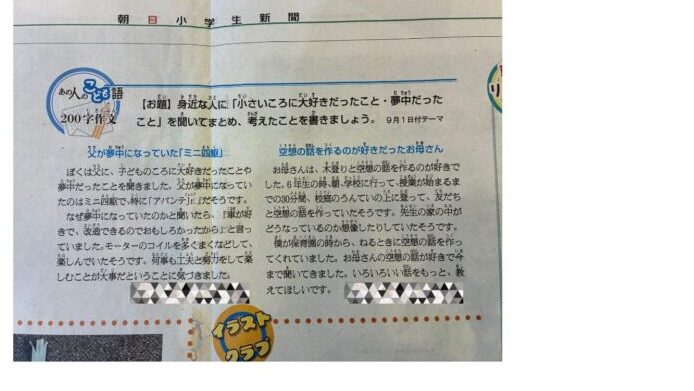 朝日小学生新聞
あの人のこども語
200字作文
【お題】身近な人に「小さいころに大好きだったこと・夢中だった
こと」を聞いてまとめ、考えたことを書きましょう。 9月1日付テーマ
父が夢中になっていた「ミニ四駆」
ぼくは父に、子どものころに大好きだったことや
夢中だったことを聞きました。父が夢中になってい
たのはミニ四駆で、特に「アバンテJr.」だそうです。
なぜ夢中になっていたのかと聞いたら、「車が好
きで、改造できるのでおもしろかったから」と言っ
ていました。モーターのコイルを多くまくなどして、
楽しんでいたそうです。何事も工夫と努力をして楽
しむことが大事だということに気づきました。
空想の話を作るのが好きだったお母さん
お母さんは、木登りと空想の話を作るのが好きで
した。6年生の時、朝、学校に行って、授業が始まるま
での30分間、校庭のうんていの上に登って、友だち
と空想の話を作っていたそうです。先生の家の中が
どうなっているのか想像したりしていたそうです。
僕が保育園の時から、ねるときに空想の話を作っ
てくれていました。お母さんの空想の話が好きで今
まで聞いてきました。いろいろいい話をもっと、教
えてほしいです。
イラスト
クラブ